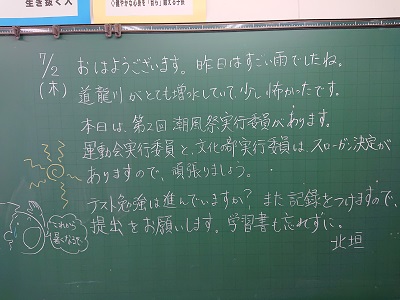 生き抜く人
7/2
(木)
おはようございます。昨日はすごい雨でしたね。
道龍川がとても増水していて少し怖かったです。
本日は、第2回潮風祭実行委員があります。
運動会実行委員と、文化部実行委員は、スローガン決定が
ありますので、頑張りましょう。
テスト勉強は進んでいますか?また記録をつけますので、
提出をお願いします。学習書も忘れずに。
北垣
これから
暑くなるで